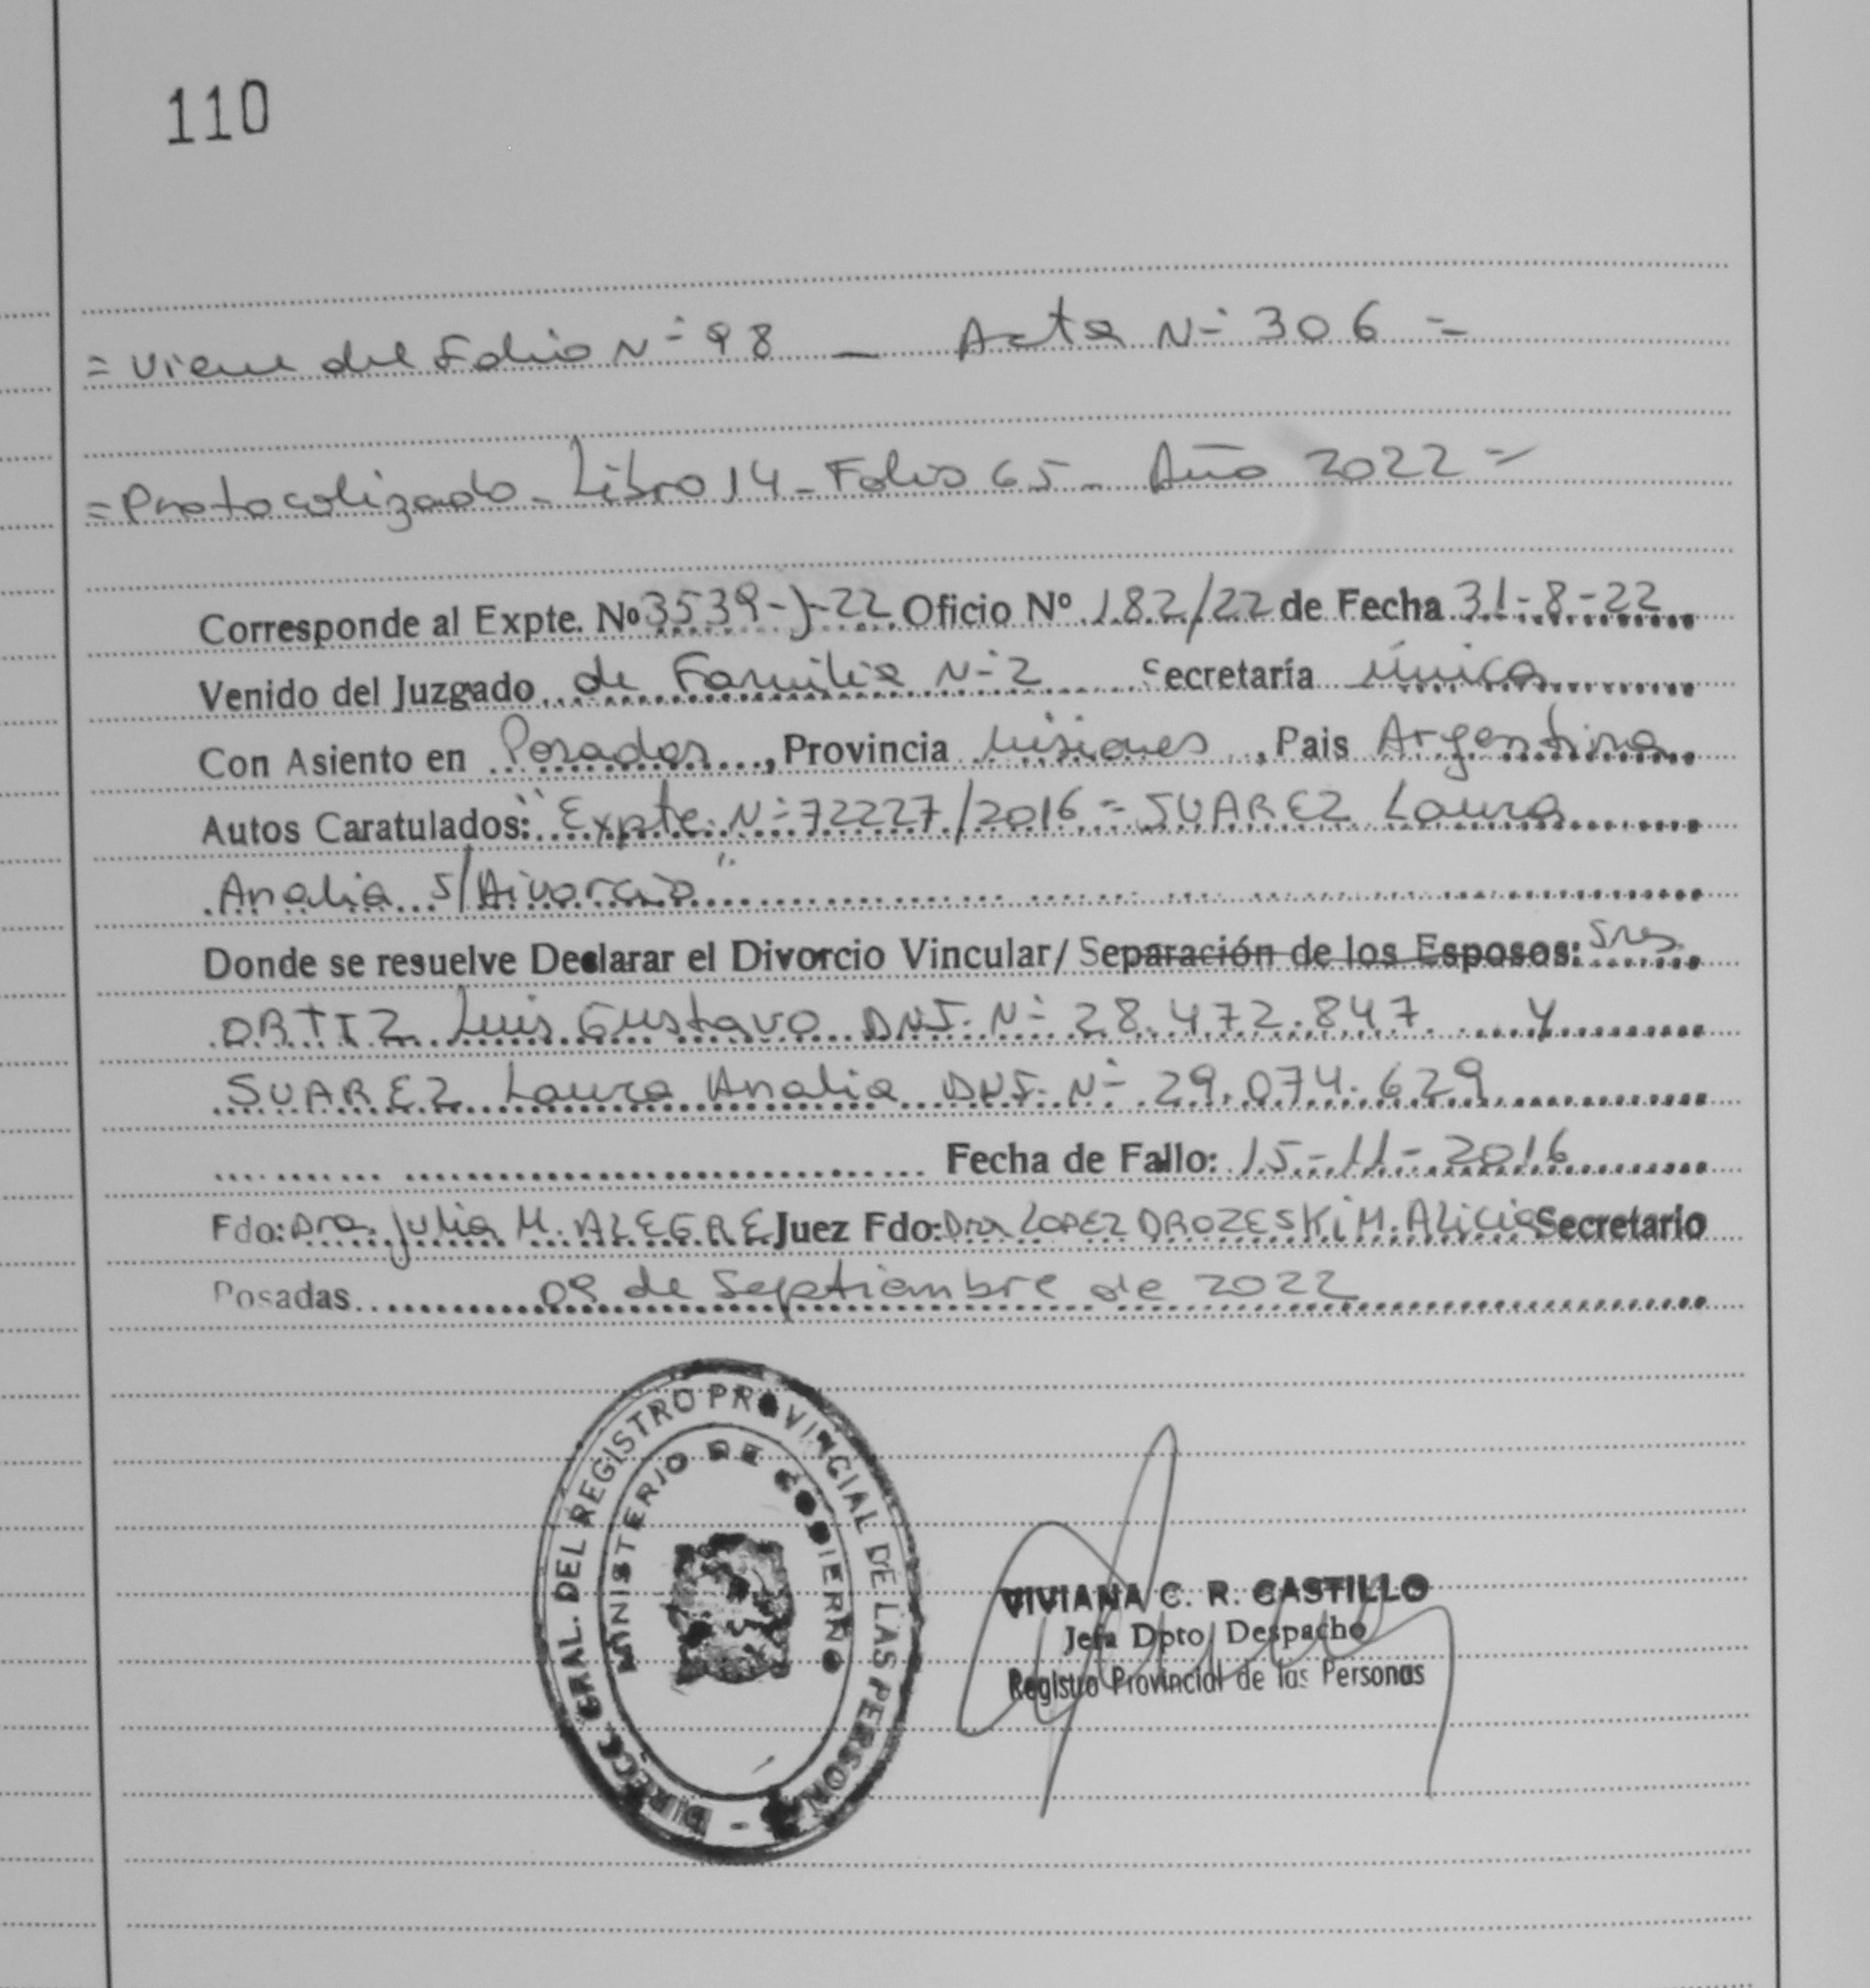 110
= Viene del Folio N° 98 — Acta N° 306 =
= Protocolizado - Libro 14 - Folio 65 - Año 2022 =
Corresponde al Expte. Nº 3539-J-22 Oficio Nº 182/22 de Fecha 31-8-22
Venido del Juzgado de Familia N°2 Secretaría Única
Con Asiento en Posadas, Provincia Misiones, Pais Argentina
Autos Caratulados: "Expte. N° 72227/2016 = SUAREZ Laura
Analia s/Divorcio"
Donde se resuelve Declarar el Divorcio Vincular/ Separación de los Esposos: Sres.
ORTIZ Luis Gustavo DNI. N° 28.472.847 y
SUAREZ Laura Analia DNI. N° 29.074.629
Fecha de Fallo: 15-11-2016
Fdo: Dra. Julia M. ALEGRE Juez Fdo: Dra LOPEZ DROZESKI M. Alicia Secretario
Posadas. 09 de Septiembre de 2022
DIRECC. GRAL. DEL REGISTRO PROVINCIAL DE LAS PERSON -
MINISTERIO DE GOBIERNO
VIVIANA C. R. CASTILLO
Jefa Dpto. Despacho
Registro Provincial de las Personas